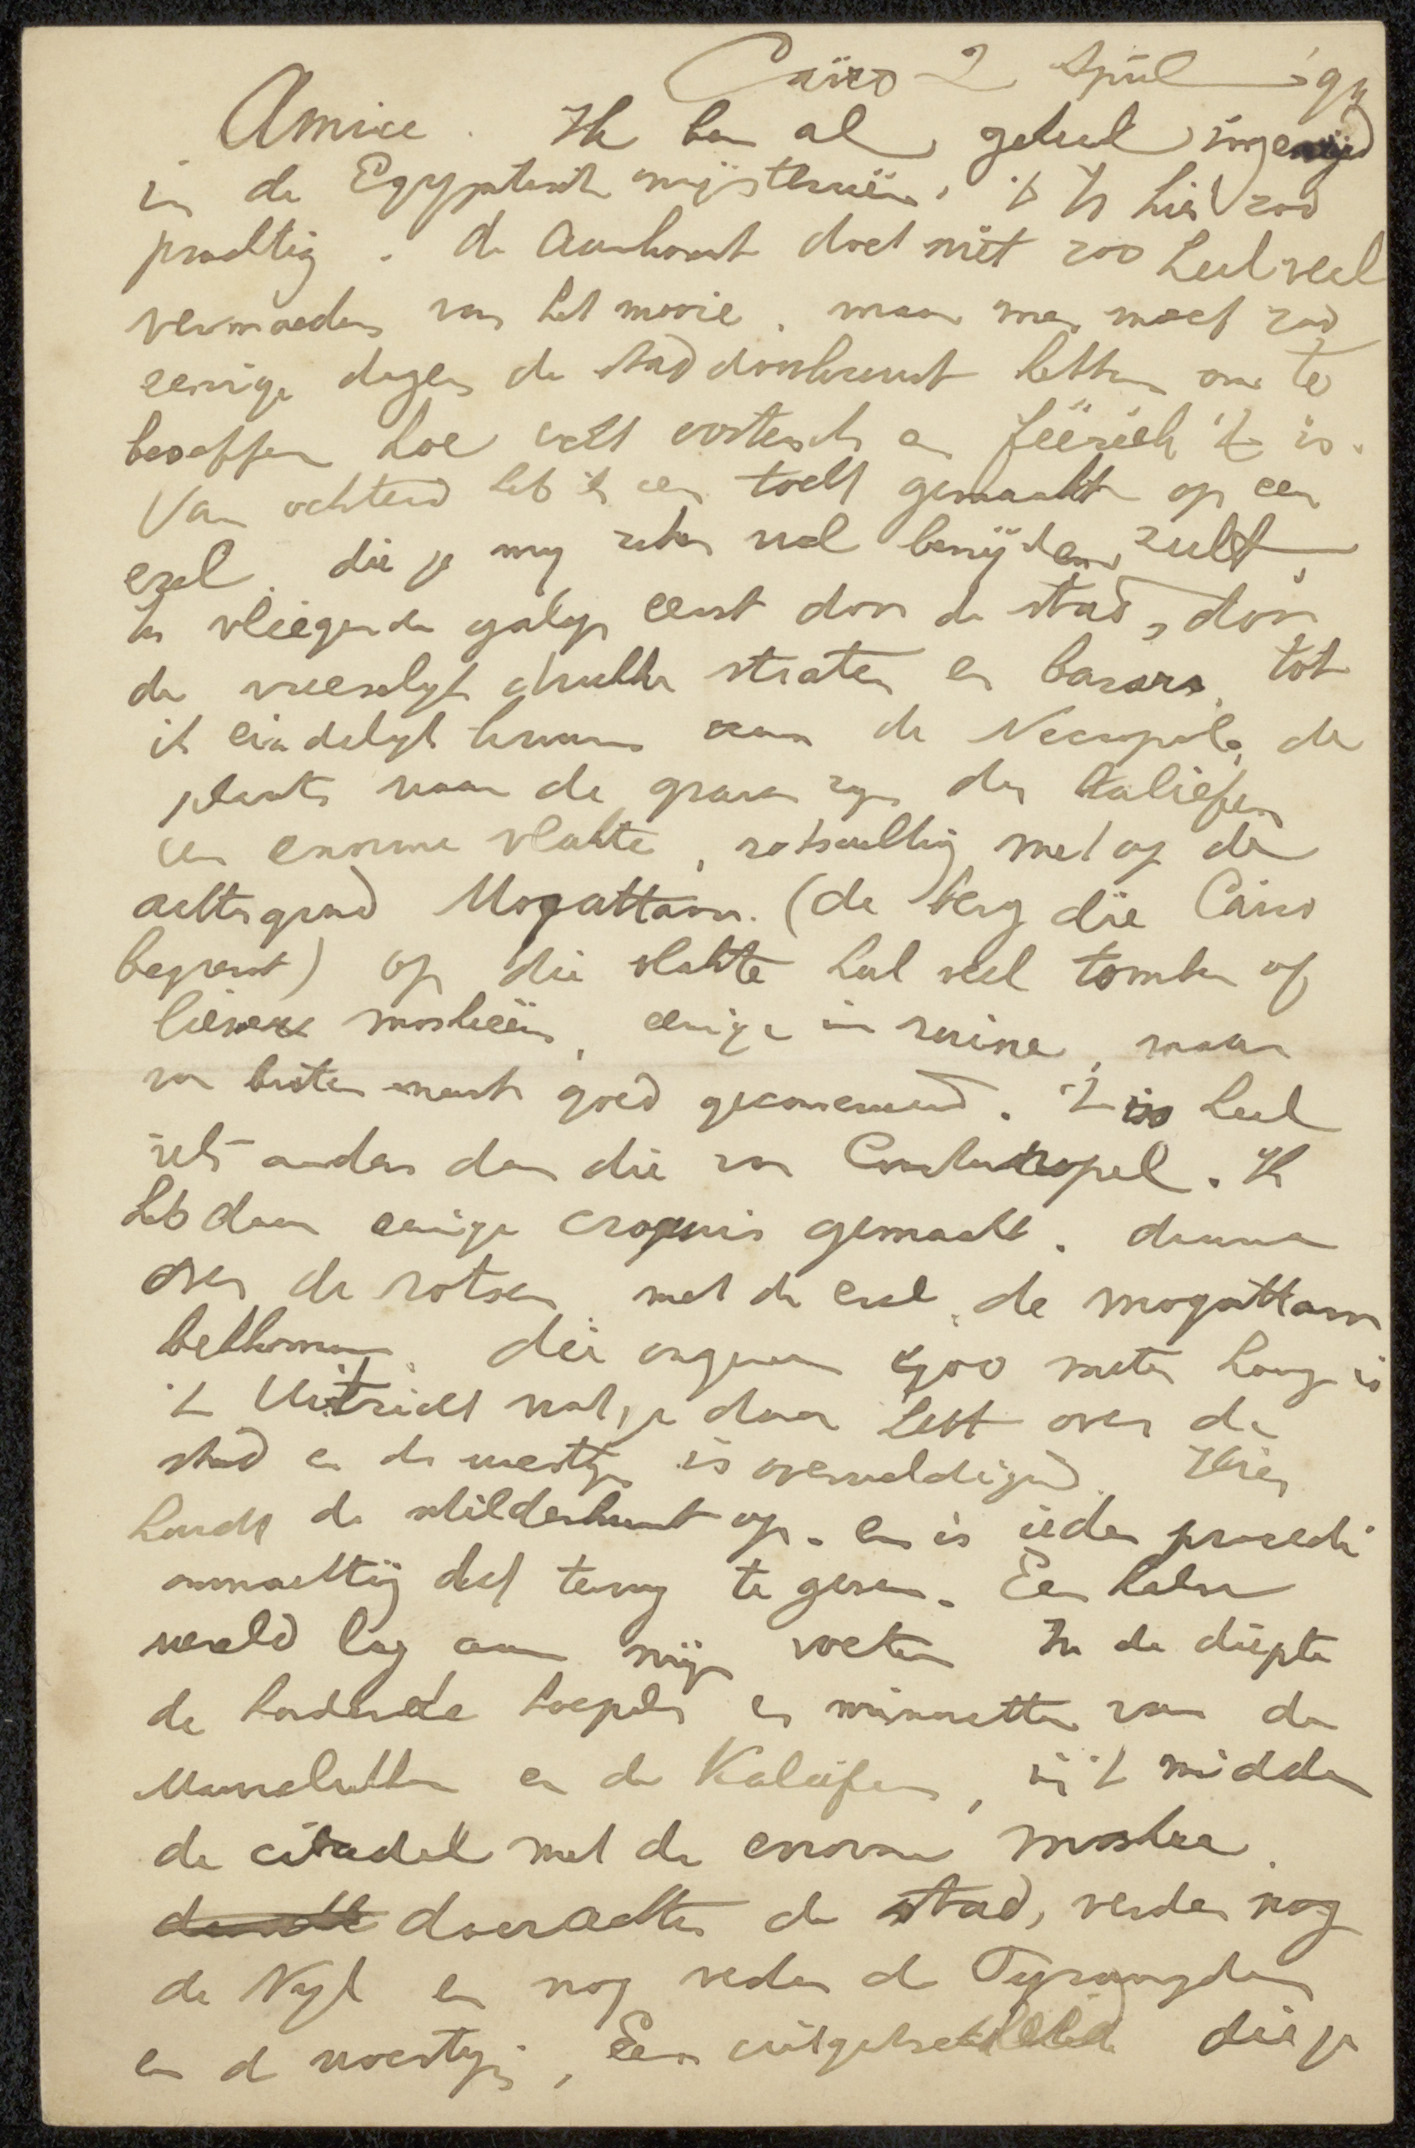 Caïro 2 April '94
Amice. Ik ben al geheel ingewijd
in de Egyptische mysterieën. 't Is hier zoo
prachtig. de Aankomst doet niet zoo heel veel
vermoeden van het mooie. maar men moet zoo
eenige dagen de stad doorkruist hebben om te
beseffen hoe echt oostersch en feeëriek 't is.
Van ochtend heb ik een tocht gemaakt op een
ezel. die je my zeker wel benijden zult.
In vliegende galop eerst door de stad, door
de vreeselyk drukke straten en bazars, tot
ik eindelyk kwam aan de Necropole, de
plaats waar de graven zyn der Kaliefen
een enorme vlakte, rotsachtig met op den
achtergrond Mogattam. (de berg die Cairo
begrenst) op die vlakte heel veel tomben of
liever moskeeën, eenige in ruine, maar
van buiten meest goed geconserveerd. 't is heel
iets anders dan die van Constantinopel. Ik
heb daar eenige croquis gemaakt. daarna
over de rotsen met de ezel de mogattam
beklommen. die ongeveer 400 meter hoog is
't Uitzicht wat je daar hebt over de
stad en de woestyn is overweldigend. Hier
houdt de schilderkunst op. en is ieder procedé
onmachtig dat terug te geven. Een halve
wereld lag aan mijn voeten In de diepte
de honderde koepels en minaretten van de
Mamelukken en de Kaliefen, in 't midden
de citadel met de enorme moskee.
daarachter de stad, verder nog
de Nyl en nog verder de Pyramyden
en de woestyn, Een uitgestrektheid die je